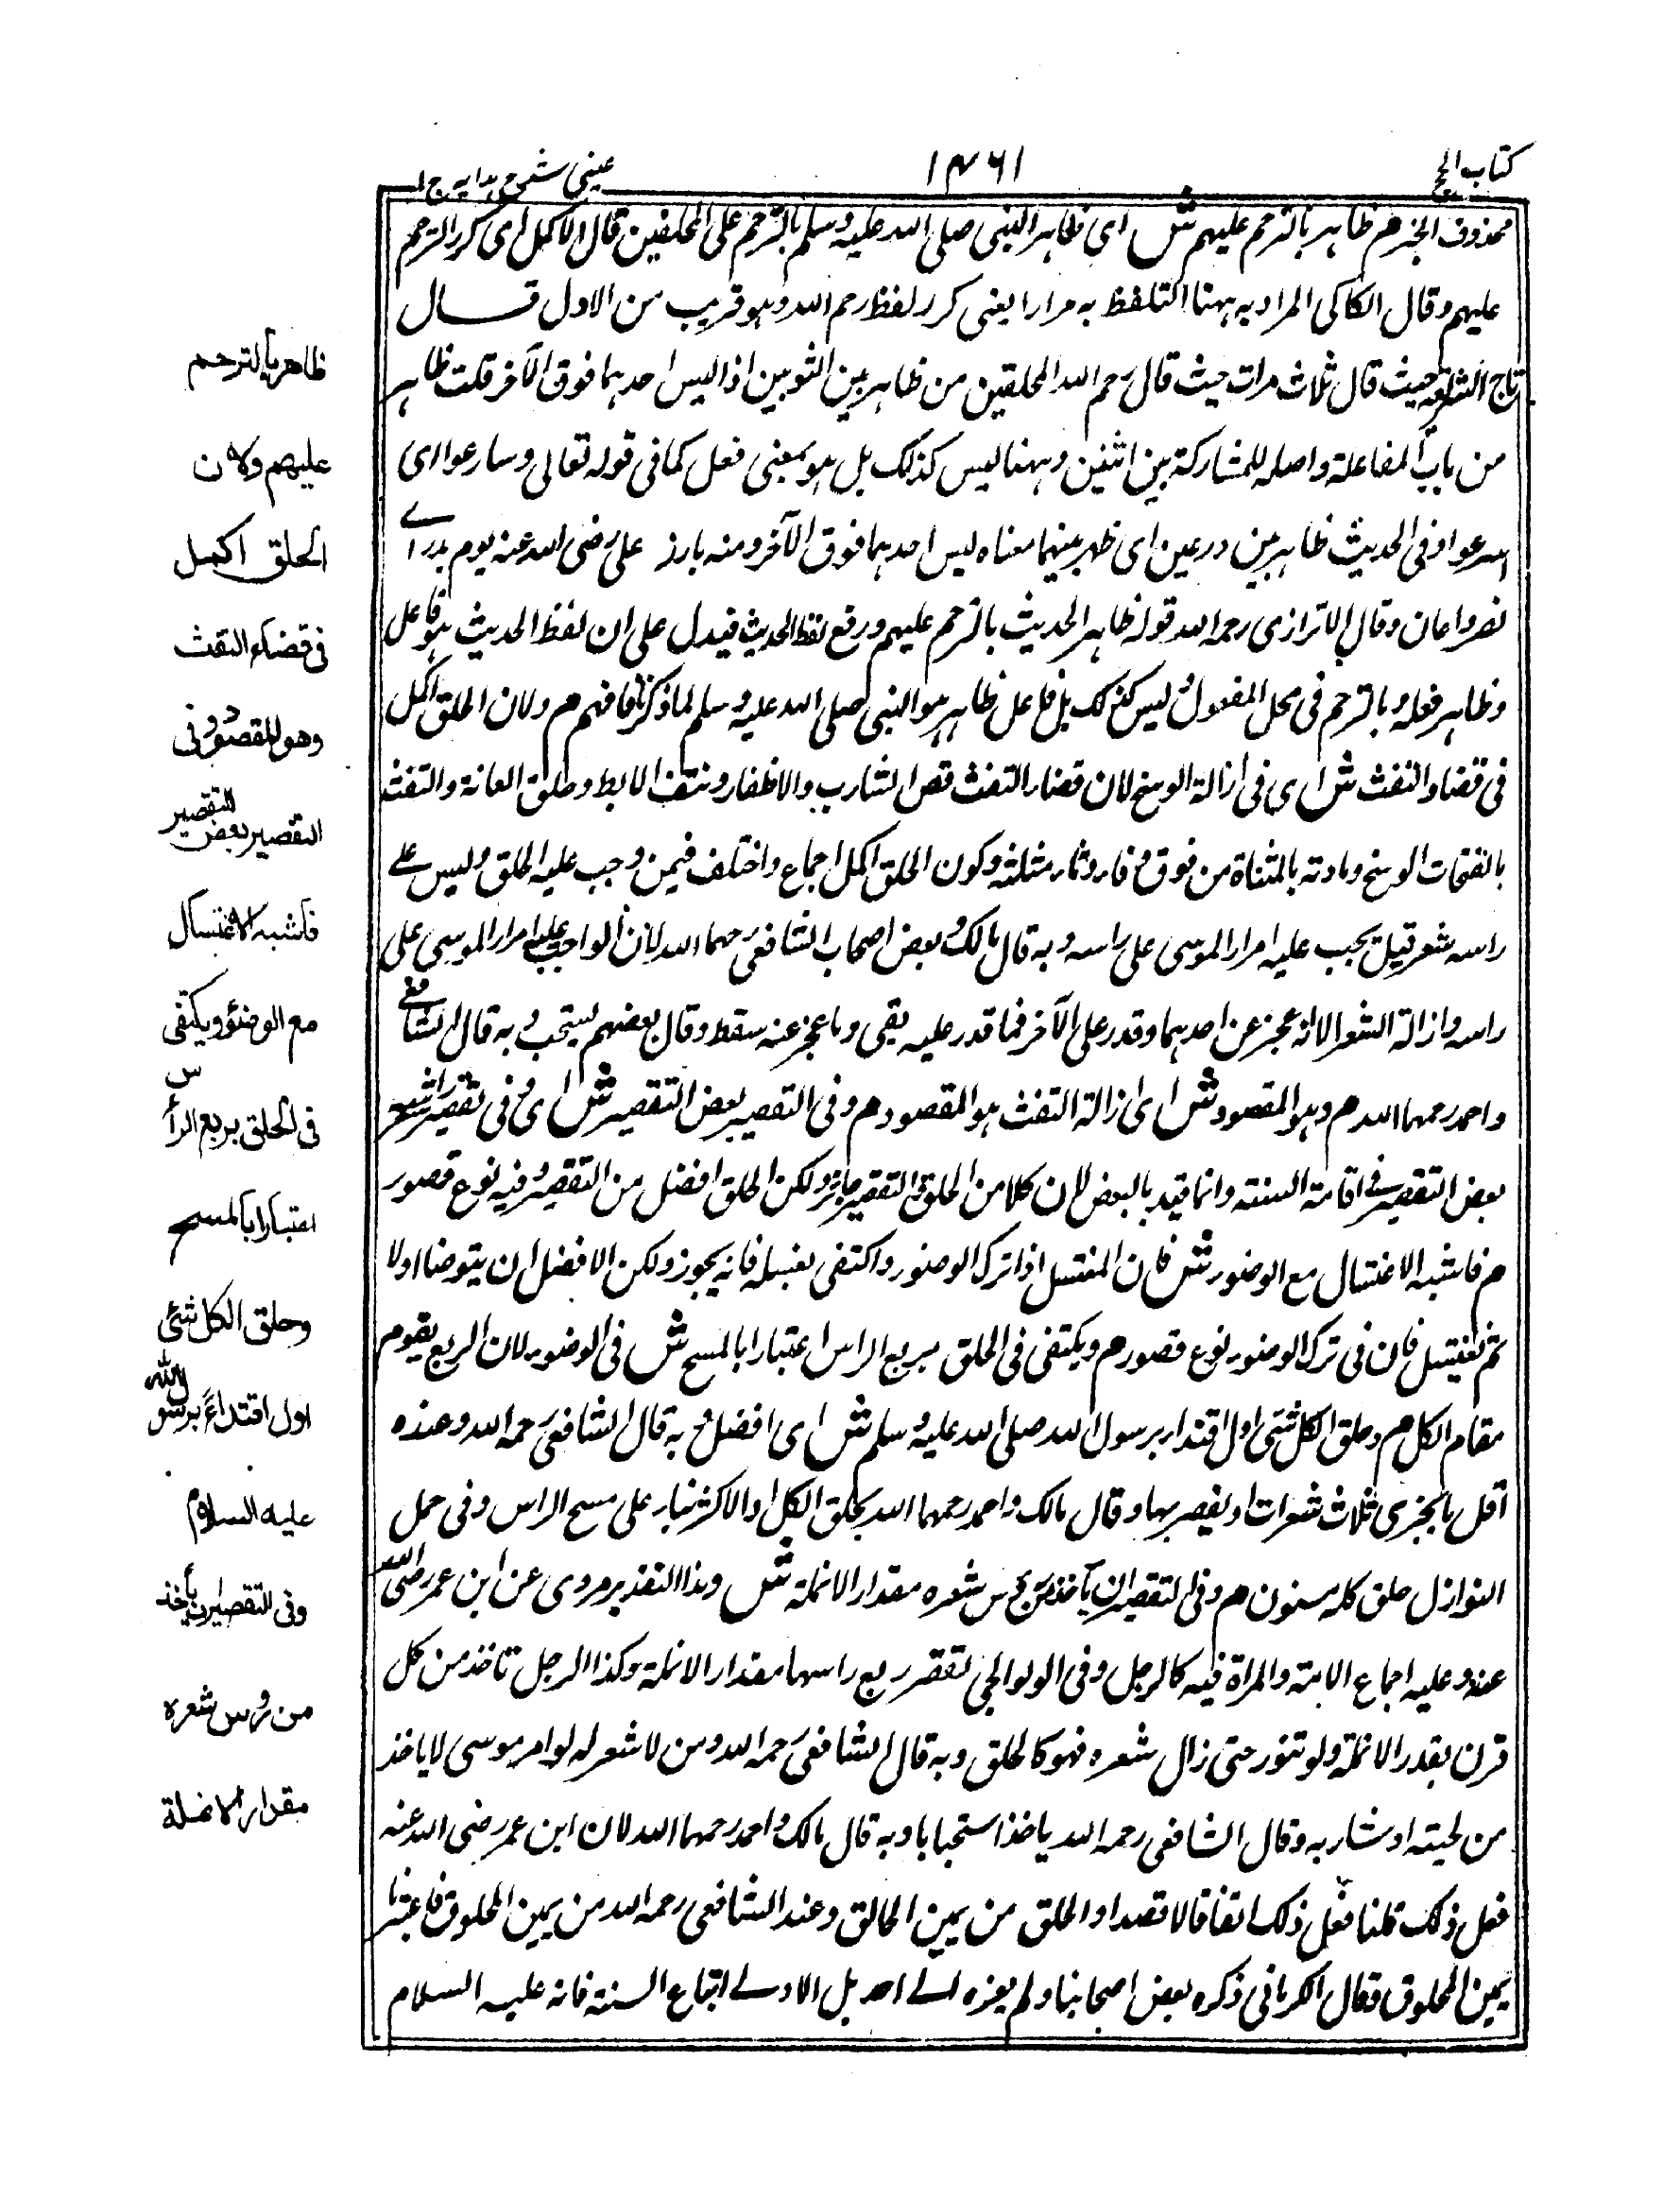 كتاب الحج
١٤٦١
عيني شرح هدايه ج ١
محذوف الخبر م ظاهر بالترحم عليهم ش اى ظاهر النبى صلى الله عليه وسلم بالترحم على المحلقين قال الاكمل اى كرر الترحم
عليهم وقال الكاكى المراد به ههنا التلفظ به مرارا يعنى كرر لفظ رحم الله وهو قريب من الاول قال
تاج الشريعة حيث قال ثلاث مرات حيث قال رحم الله المحلقين من ظاهر بين الثوبين اذا لبس احدهما فوق الآخر قلت ظاهر
من باب المفاعلة واصله للمشاركة بين اثنين وههنا ليس كذلك بل هو بمعنى فعل كما فى قوله تعالى وسارعوا اى
اسرعوا وفى الحديث ظاهر بين درعين اى ظهر بينهما معناه لبس احدهما فوق الآخر ومنه بارز على رضى الله عنه يوم بدر اے
نصر واعان وقال الاترازى رحمه الله قوله ظاهر الحديث بالترحم عليهم ورفع لفظ الحديث فيدل على ان لفظ الحديث هو فاعل
وظاهر فعله وبالترحم فى محل المفعول وليس كذلك بل فاعل ظاهر هو النبى صلى الله عليه وسلم لما ذكرنا فافهم م ولان الحلق اكمل
فى قضاء التفث ش اى فى ازالة الوسخ لان قضاء التفث قص الشارب والاظفار ونتف الابط وحلق العانة والتفث
بالفتحات الوسخ ومادته بالمثناة من فوق وفاء وثاء مثلثة وكون الحلق اكمل اجماع واختلف فيمن وجب عليه الحلق وليس على
راسه شعر قيل يجب عليه امرار الموسى على راسه وبه قال مالك وبعض اصحاب الشافعى رحمهما الله لان الواجب عليه امرار الموسى على
راسه وازالة الشعر الا انه عجز عن احدهما وقدر على الآخر فما قدر عليه بقى وما عجز عنه سقط وقال بعضهم يستحب وبه قال الشافعى
واحمد رحمهما الله م وهو المقصود ش اى ازالة التفث هو المقصود م وفى التقصير بعض التقصير ش اى وفى تقصير الشعر
بعض التقصير فى اقامة السنة وانما قيد بالبعض لان كلا من الحلق والتقصير جائز ولكن الحلق افضل من التقصير وفيه نوع قصور
م فاشبه الاغتسال مع الوضوء ش فان المغتسل اذا ترك الوضوء واكتفى بغسله فانه يجوز ولكن الافضل ان يتوضا اولا
ثم يغتسل فان فى ترك الوضوء نوع قصور م ويكتفى فى الحلق بربع الراس اعتبارا بالمسح ش فى الوضوء لان الربع يقوم
مقام الكل م وحلق الكل شئ اولى اقتداء برسول الله صلى الله عليه وسلم ش اى افضل وبه قال الشافعى رحمه الله وعنده
اقل ما يجزى ثلاث شعرات او يقصر بها وقال مالك واحمد رحمهما الله يحلق الكل او الاكثر بناء على مسح الراس وفى حمل
النوازل حلق كله مسنون م وفى التقصير ان يأخذ من رؤس شعره مقدار الانملة ش وهذا التقدير مروى عن ابن عمر رضى الله
عنه وعليه اجماع الامة والمراة فيه كالرجل وفى الولوالجى تقصر ربع راسها مقدار الانملة وكذا الرجل تاخذ من كل
قرن بقدر الانملة ولو تنور حتى زال شعره فهو كالحلق وبه قال الشافعى رحمه الله ومن لا شعر له لو امر موسى لا ياخذ
من لحيته او شاربه وقال الشافعى رحمه الله ياخذ استحبابا وبه قال مالك واحمد رحمهما الله لان ابن عمر رضى الله عنه
فعل ذلك قلنا فعل ذلك اتفاقا لا قصدا والحلق من يمين الحالق وعند الشافعى رحمه الله من يمين المحلوق فاعتبر
يمين المحلوق فقال الكرمانى ذكره بعض اصحابنا ولم يعزه الے احد بل الاولے اتباع السنة فانه عليه السلام
ظاهر بالترحم
عليهم ولان
الحلق اكمل
فى قضاء التفث
وهو المقصود وفى
التقصير بعض التقصير
فاشبه الاغتسال
مع الوضوء ويكتفى
فى الحلق بربع الرأس
اعتبارا بالمسح
وحلق الكل شئ
اولى اقتداءً برسول الله
عليه السلام
وفى التقصير ان يأخذ
من رؤس شعره
مقدار الانملة